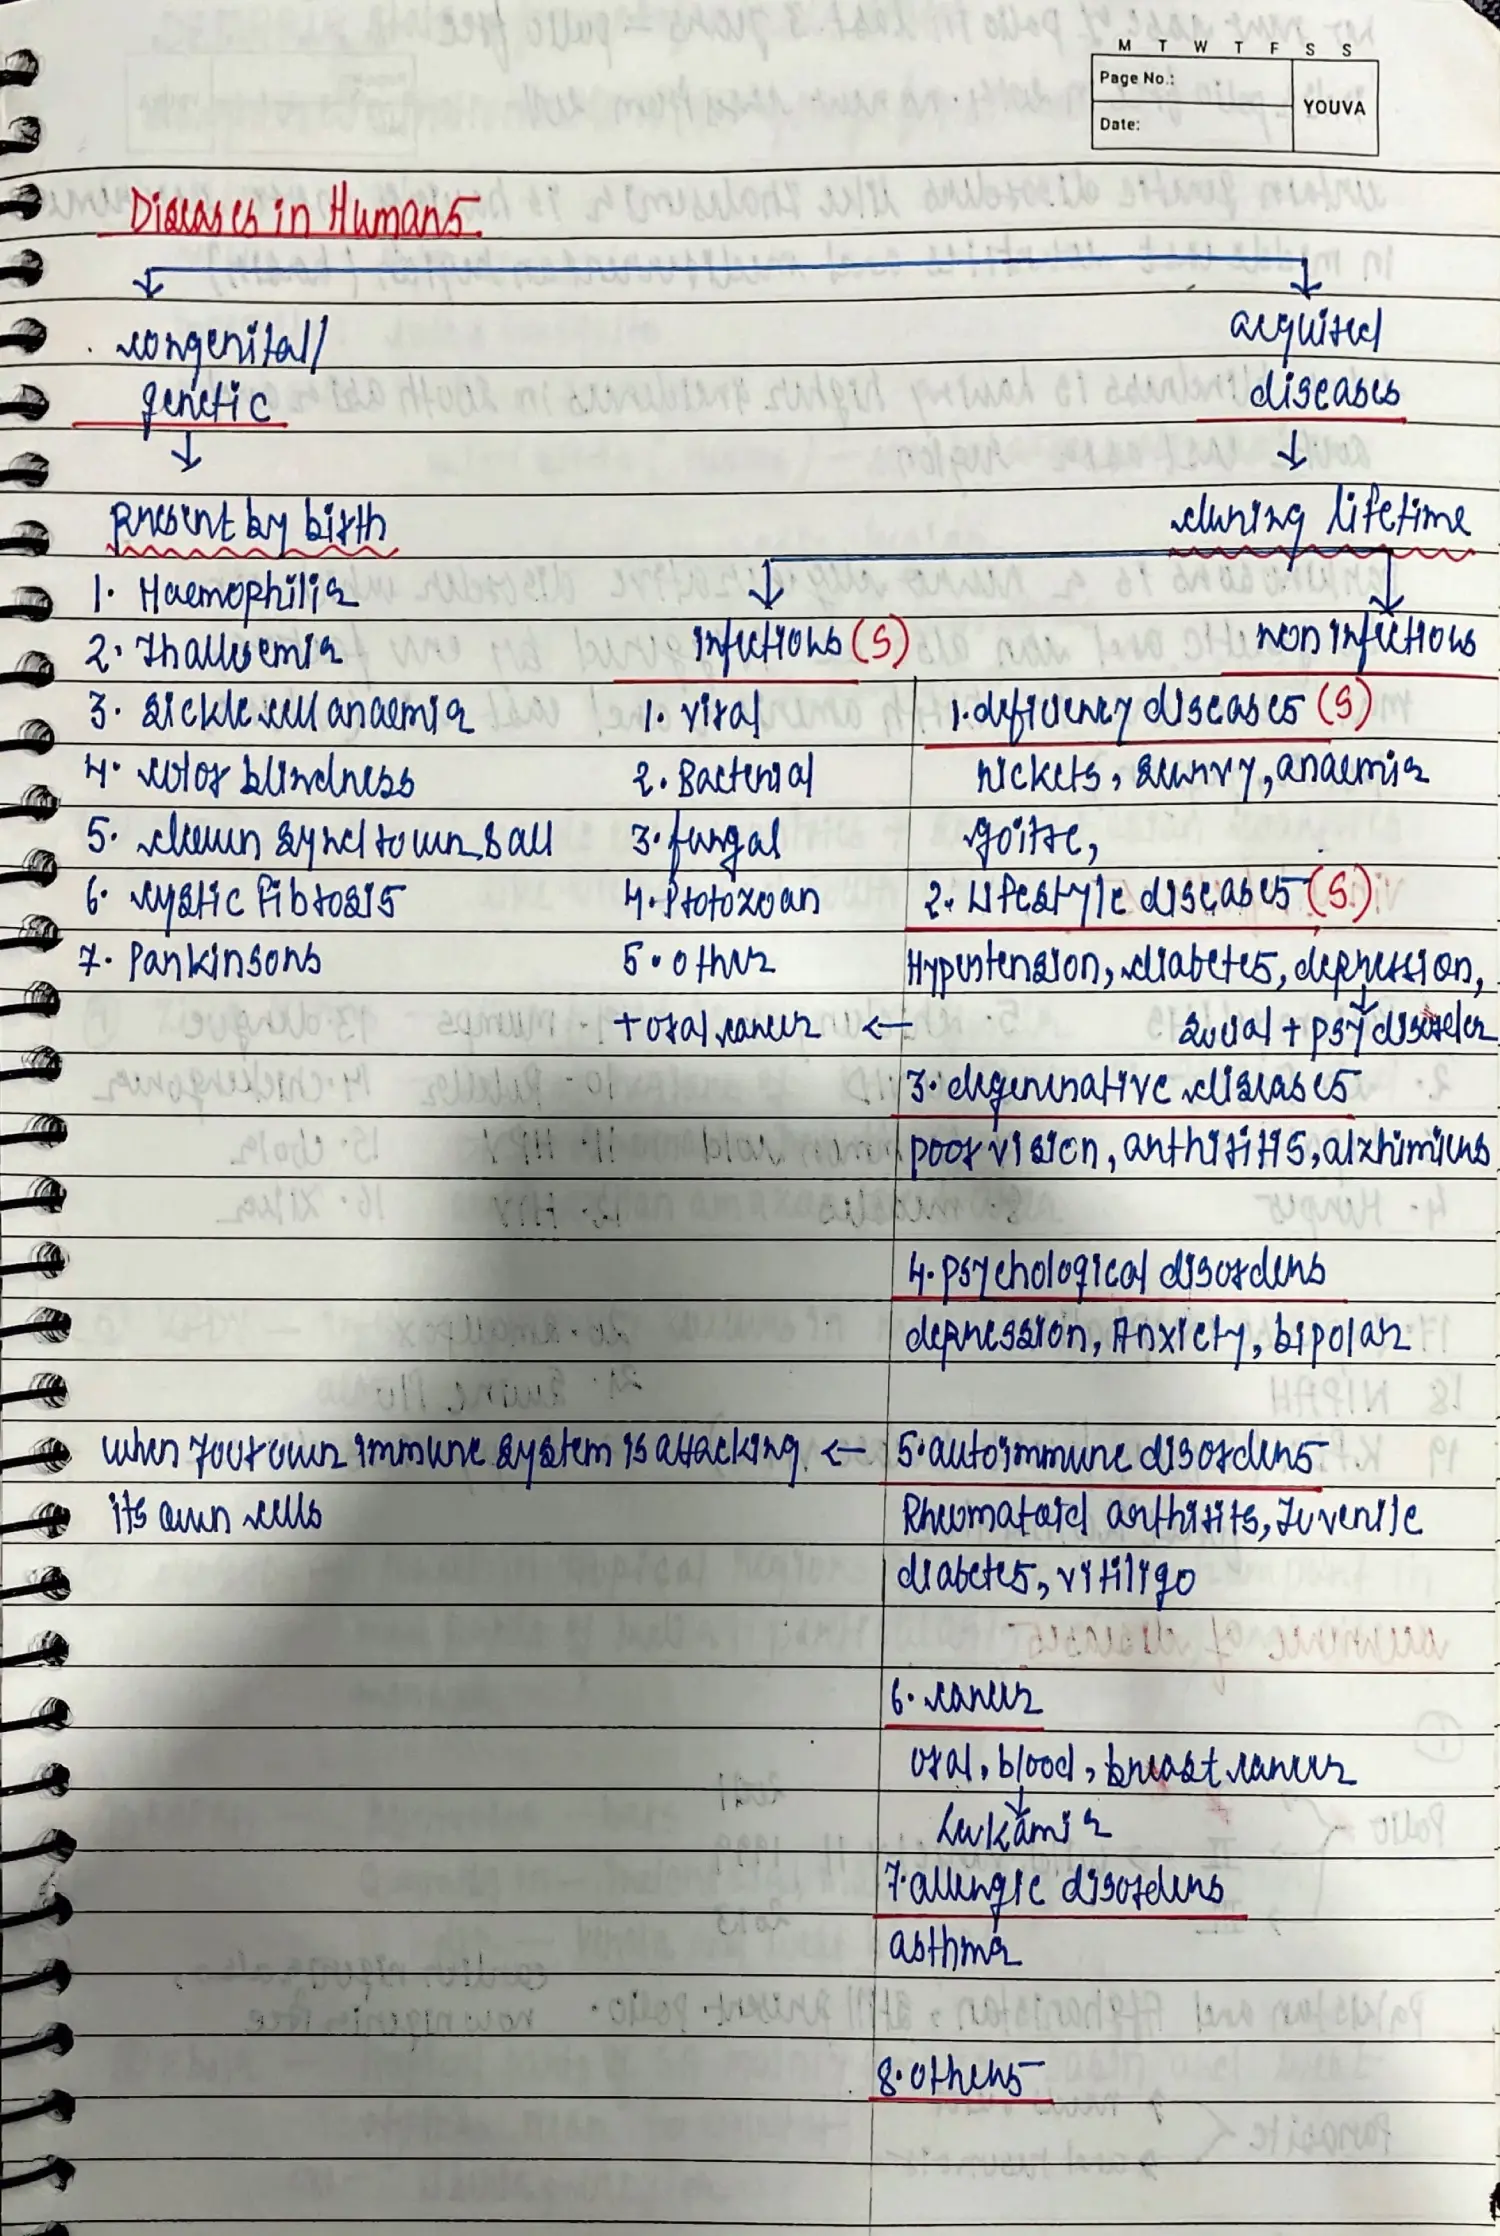 M T W T F S S
Page No.:
YOUVA
Date:
Diseases in Humans
congenital/
genetic
acquired
diseases
Present by birth
during lifetime
1. Haemophilia
2. Thallesemia
3. sickle cell anaemia
4. color blindness
5. down syndrown
6. cystic fibrosis
7. Parkinsons
infectious (S)
1. viral
2. Bacterial
3. fungal
4. Protozoan
5. other
non infectious
1. deficiency diseases (S)
rickets, scurvy, anaemia
goitre,
2. Lifestyle diseases (S)
Hypertension, diabetes, depression,
+ oral cancer ← social + psy disorder
3. degenerative diseases
poor vision, arthritis, alzhimiers
4. psychological disorders
depression, Anxiety, bipolar
when your own immune system is attacking ← 5. autoimmune disorders
its own cells
Rheumatoid arthritits, Juvenile
diabetes, vitiligo
6. cancer
oral, blood, breast cancer
Leukamia
7. allergic disorders
asthma
8. others